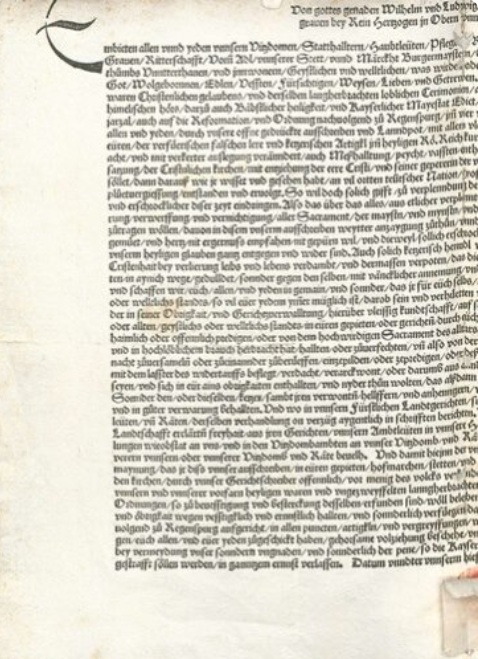 Von gottes genaden Wilhelm vnd Ludwig
grauen bey Rein Hertzogen in Obern vnn
Embieten allen vnnd yeden vnnsern Vitzdomen / Statthalltern / Haubtleüten / Pfleg
Grauen / Ritterschafft / Vom Adl / vnnserer Stett / vnnd Märckht Burgermaystern
thumbs Vnntterthanen / vnd jnnwonern / Geystlichen vnd welltlichen / was
Got / Wolgebornnen / Edlen / Vessten / Fürsichtigen / Weysen / Lieben vnd Getrewen
waren Christenlichen gelaubens / vnd derselben lanngherbrachten loblichen Cerimonien
auch Bäbstlicher heiligkeit / vnd Kayserlicher Mayestat Edict
jarzal / auch auf die Reformation / vnd Ordnung nachuolgend zu Regenspurg / jm vier
allen vnd yeden / durch vnsere offne gedruckte ausschreiben vnd Lanndpot / mit allem
eüren / der verfüerischen falschen lere vnd ketzerischen Artigkl jm heyligen Rö. Reich
acht / vnd mit verkerter auslegung / auch Meßhalltung / peycht / vassten
satzung / der Cristlichen kirchen / mit entziehung der eere Cristi / vnd seiner gepererin
söllet / dann daraus wie jr wisst vnd gesehen habt / an vil ortten teütscher Nation
pluetuergiessung / entstanden vnd eruolgt. So wil doch solich gifft / zu
vnd erschrocklicher diser zeyt eindringen. Also das über das alles / aus etlicher
rung / verwerffung / vnd vernichtigung / aller Sacrament / der maysten / vnd mynsten
zutragen wöllen / dauon in disem vnserm ausschreiben weytter anzaygung zuthun
gemüet / vnd hertz mit ergernuß empfahen mit gepüren wil / vnd dieweyl sollich
vnserm heyligen glauben gantz entgegen vnd wider sind. Auch solich ketzerisch
Cristenhait bey verlierung leibs vnd lebens verdambt / vnd dermassen verpoten / das
ten in aynich wege / geduldet / sonnder gegen den selben / mit vänncklicher annemung
vnd schaffen wir / euch / allen / vnd yeden in gemain / vnd sonnder / das jr für euch selbs
oder welltlichs standes / so vil euer yedem ymer müglich ist / darob sein vnd verhüetten
der in seiner Obrigkait / vnd Gerichtzverwalltung / hierüber vleissig kundtschafft / auf
oder allten / geystlichs oder welltlichs standes / in eüren gepieten / oder gerichten / durch
haimlich oder offennlich predigen / oder von dem hochwirdigen Sacrament des alltars
vnd in hochlöblichem brauch herbracht hat / hallten / oder zuuerfechten / vnd also von der
nacht zuuersameln oder zueinannder / einzepilden / oder zepredigen / oder
mit dem lasster des widertauffs befleggt / verdacht / oder darumb
seyen / vnd sich in eür ains obrigkaiten enthallten / vnd nyder thun wolten / das
Sonnder den / oder dieselben / ketzer / sambt jren verwonten helffern / vnd anhenngern
vnd in güter verwarung behallten. Vnd wo in vnnsern Fürstlichen Lanndtgerichten
leüten / vnd Räten / derselben verhandlung on verzug aygentlich in schrifften berichten
Landschafft erclärten freyhait / aus jren Gerichten / vnnsern Ambtleüten in vnnser
lungen widerbracht an vns / vnd in den Vitzdombambten an vnnser Vitzdomb / vnd
vnnsern oder vnnserer Vitzdomb vnd Räte beuelh. Vnd damit hierjnn der
maynung / das jr diß vnnser ausschreiben / in eüren gepieten / hofmarchen / stetten / vnd
den kirchen / durch vnnser Gerichtschreiber offennlich / vor menig des volcks
vnnsern vnd vnnserer vorfarn heyligen waren vnd vngezweyfelten lanngherbrachten
Ordnungen / so zu bevestigung vnd besterckung desselben erfunden sind / wöll
vnd öbrigkait wegen vesstigklich vnd ernnstlich hallten / vnd sonnderlich
uolgend zu Regenspurg aufgericht / in allen puncten / artigkln / vnd vergreyffungen
gen / euch allen / vnd eüer yeden zugeschickt haben / gehorsame volziehung beschehe
bey vermeydung vnser sonndern vngnaden / vnd sonnderlich der pene / so die Kayser
gestrafft söllen werden / in ganntzem ernnst verlassen. Datum vnndter vnnserm